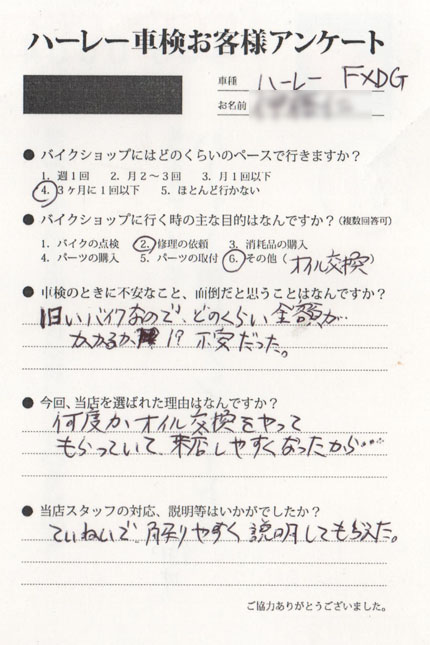 ハーレー車検お客様アンケート
車種 ハーレー FXDG
お名前
● バイクショップにはどのくらいのペースで行きますか？
1. 週1回 2. 月2～3回 3. 月1回以下
4. 3ヶ月に1回以下 5. ほとんど行かない
● バイクショップに行く時の主な目的はなんですか？(複数回答可)
1. バイクの点検 2. 修理の依頼 3. 消耗品の購入
4. パーツの購入 5. パーツの取付 6. その他 (オイル交換)
● 車検のときに不安なこと、面倒だと思うことはなんですか？
旧いバイクなので、どのくらい金額が…
かかるか !? 不安だった。
● 今回、当店を選ばれた理由はなんですか？
何度かオイル交換をやって
もらっていて、来店しやすくなったから…
● 当店スタッフの対応、説明等はいかがでしたか？
ていねいで、解りやすく説明してもらえた。
ご協力ありがとうございました。